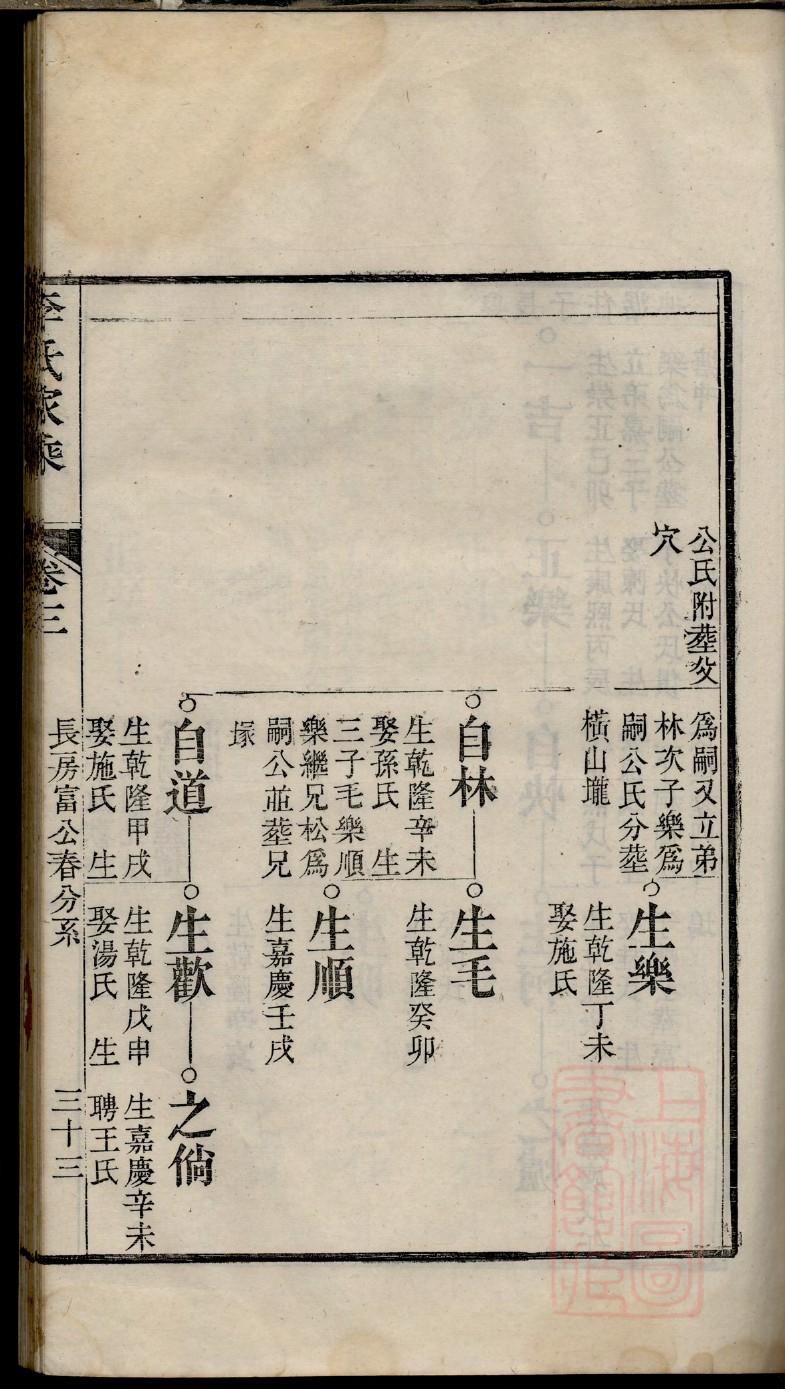 公氏附塟父
穴
為嗣又立弟
林次子樂為
嗣公氏分塟
橫山壠
生樂
生乾隆丁未
娶施氏
自林
生乾隆辛未
娶孫氏 生
三子毛樂順
樂繼兄松為
嗣公並塟兄
塚
生毛
生乾隆癸卯
生順
生嘉慶壬戌
自道
生乾隆甲戌
娶施氏 生
生歡
生乾隆戊申
娶湯氏 生
之倘
生嘉慶辛未
聘王氏
李氏家乘
卷三
長房富公春分系
三十三